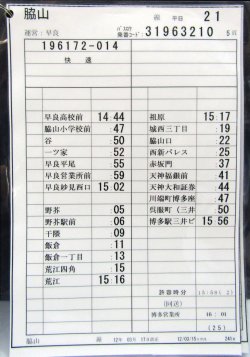 脇山 平日 21
運営：早良 乗務コード: 31963210 5頁
196172-014
快速
早良高校前 14 44
脇山小学校前 :47
谷 :50
一ツ家 :52
早良平尾 :55
早良営業所前 :59
早良妙見西口 15 02
野芥 :05
野芥駅前 :06
干隈 :09
飯倉 :11
飯倉一丁目 :13
荒江四角 :15
荒江 15 16
祖原 15 17
城西三丁目 :19
脇山口 :22
西新パレス :25
赤坂門 :37
天神福銀前 :41
天神大和証券 :44
川端町博多座 :47
呉服町（三井 :50
博多駅三井ビ 15 56
(回送)
博多営業所 16 : 01
(25)
脇山